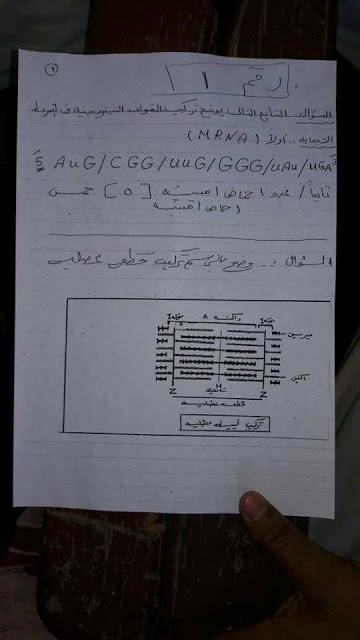 ①
رقم ١
السؤال التتابع التالى يوضح تركيب القواعد النيتروجينية فى شريط
الاجابة .. أولاً (MRNA)
5 AUG/CGG/UUG/GGG/UAU/UGA 3
ثانياً / عدد احماض امينيه [٥] خمس
احماض امينيه
السؤال :- وضح بالرسم تركيب قطعه عضليه
داكنه A
ميوسين
اكتين
H
Z Z
قطعه عضليه
تركيب ليفه عضليه